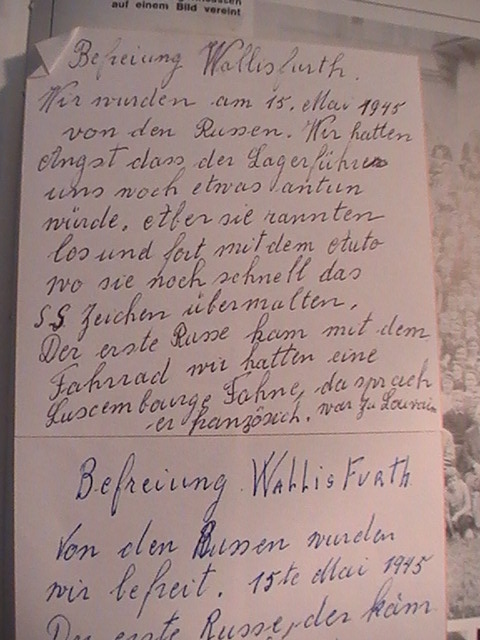 auf einem Bild vereint
Befreiung Wallisfurth.
Wir wurden am 15. Mai 1945
von den Russen. Wir hatten
Angst dass der Lagerführer
uns noch etwas antun
würde. Aber sie rannten
los und fort mit dem Auto
wo sie noch schnell das
S.S. Zeichen übermalten.
Der erste Russe kam mit dem
Fahrrad wir hatten eine
Luxembourge Fahne, da sprach
er französich. war zu Louvain
Befreiung WALLisFurth
Von den Russen wurden
wir befreit. 15te Mai 1945
Der erste Russe, der kam